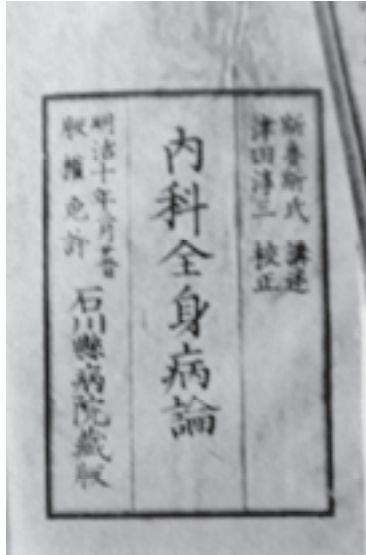 斯魯斯氏 講述
津田淳三 校正
内科全身病論
明治十年 月
版權免許
石川縣病院藏版